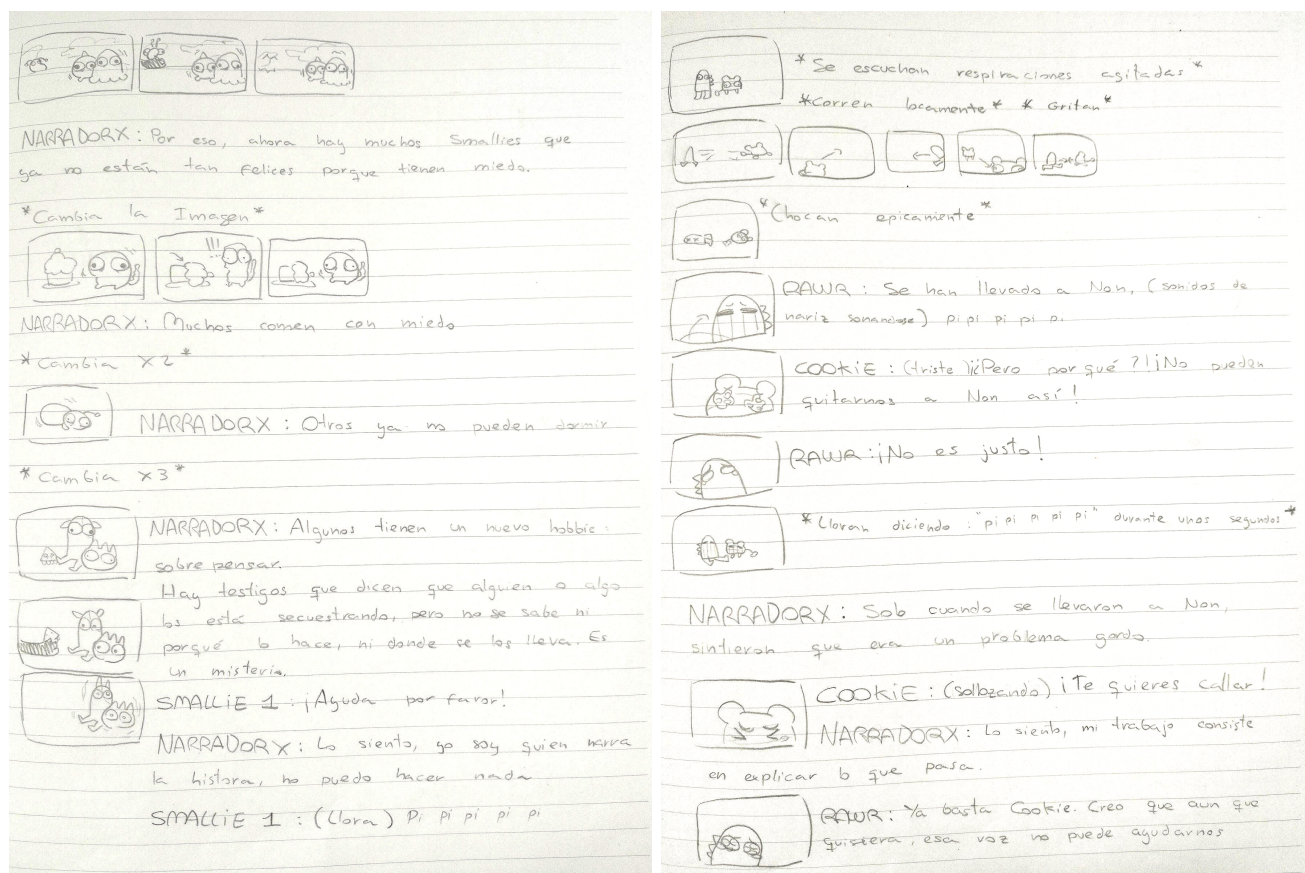 NARRADORX: Por eso, ahora hay muchos Smallies que
ya no están tan felices porque tienen miedo.
*Cambia la Imagen*
NARRADORX: Muchos comen con miedo
*Cambia x2*
NARRADORX: Otros ya no pueden dormir
*Cambia x3*
NARRADORX: Algunos tienen un nuevo hobbie:
sobrepensar.
Hay testigos que dicen que alguien o algo
los está secuestrando, pero no se sabe ni
porqué lo hace, ni donde se los lleva. Es
un misterio.
SMALLIE 1: ¡Ayuda por favor!
NARRADORX: Lo siento, yo soy quien narra
la histora, no puedo hacer nada
SMALLIE 1: (Llora) Pi pi pi pi pi
*Se escuchan respiraciones agitadas*
*Corren locamente* *Gritan*
*Chocan epicamente*
RAWR: Se han llevado a Non, (sonidos de
nariz sonandose) pi pi pi pi p.
COOKIE: (triste) ¡¿Pero por qué?! ¡No pueden
quitarnos a Non así!
RAWR: ¡No es justo!
*Lloran diciendo: "pi pi pi pi pi" durante unos segundos*
NARRADORX: Solo cuando se llevaron a Non,
sintieron que era un problema gordo.
COOKIE: (sollozando) ¡Te quieres callar!
NARRADORX: Lo siento, mi trabajo consiste
en explicar lo que pasa.
RAWR: Ya basta Cookie. Creo que aun que
quisiera, esa voz no puede ayudarnos